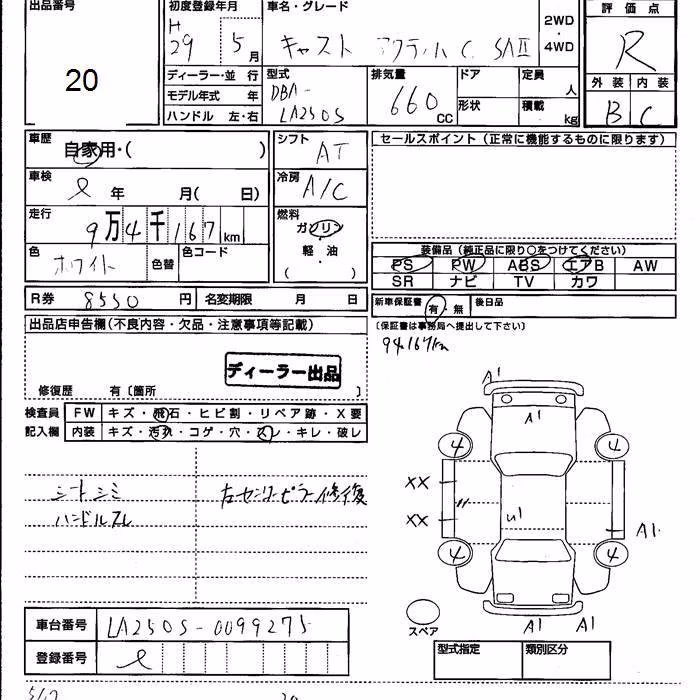 出品番号
20
初度登録年月
H
29 5 月
車名・グレード
キャスト アクティバ G SAⅡ
2WD
・
4WD
評価点
R
外装 内装
B C
ディーラー・並 行
モデル年式 年
ハンドル 左・右
型式
DBA-
LA250S
排気量
660 CC
ドア
形状
定員
人
積載
kg
車歴
自家用・( )
車検
年 月( 日)
走行
9万4千167 km
色
ホワイト
色替
色コード
シフト
AT
冷房
A/C
燃料
ガソリン
軽・油
( )
セールスポイント (正常に機能するものに限ります)
装備品 (純正品に限り○をつけてください)
PS PW ABS エアB AW
SR ナビ TV カワ
R券 8550 円 名変期限 月 日
新車保証書 有・無 後日品
(保証書は事務局へ提出して下さい)
94.167km
出品店申告欄(不良内容・欠品・注意事項等記載)
ディーラー出品
修復歴 有〔箇所 〕
検査員
記入欄
FW キズ・飛石・ヒビ割・リペア跡・X要
内装 キズ・汚れ・コゲ・穴・スレ・キレ・破レ
シートシミ
ハンドルスレ
左センターピラー修復
A1
A1
4 4
XX
XX
U1
A1
4 4
A1 A1
スペア
車台番号 LA250S-0099275
登録番号
型式指定 類別区分